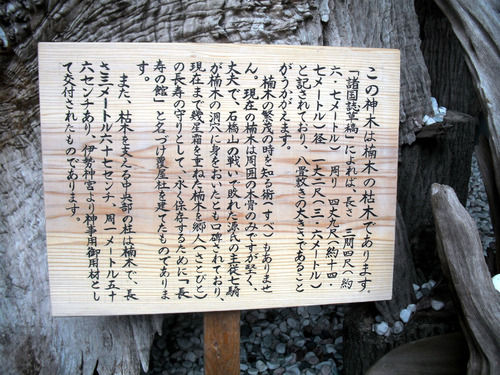 この神木は楠木の枯木であります。
「諸国誌草稿」によれば、長さ 三間四尺（約
六・七メートル）周り 四丈九尺（約十四・
七メートル）径 一丈二尺（三・六メートル）
と記されており、八畳敷きの大きさであること
がうかがえます。
楠木の繁茂の時を知る術（すべ）もありませ
ん。現在の楠木は周囲の木骨のみですが堅く、
丈夫で、石橋山の戦いで敗れた源氏の主従七騎
が楠木の洞穴に身をおいたとも口碑されており、
現在まで幾星霜を重ねた楠木を郷人（さとびと）
の長寿の守りとして、永く保存するために「長
寿の館」と名づけ覆屋社を建てたものでありま
す。
また、枯木を支える中央部の柱は楠木で、長
さ三メートル六十七センチ、周一メートル五十
六センチあり、伊勢神宮より神事用御用材とし
て交付されたものであります。